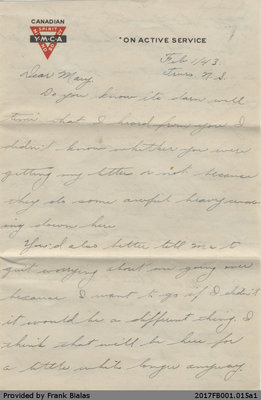 CANADIAN
SPIRIT
Y.M.C.A
"ON ACTIVE SERVICE
Feb 1/43.
Truro, N.S.
Dear Mary.
Do you know its darn well
time that I heard from you. I
didn't know whether you were
getting my letter or not because
they do some awful heavy
ing down here
You'd also better tell Ma to
quit worrying about me going over
because I want to go if I didn't
it would be a different thing. I
think that will be here for
a little while longer anyway.
Provided by Frank Bialas
2017FB001.015a1